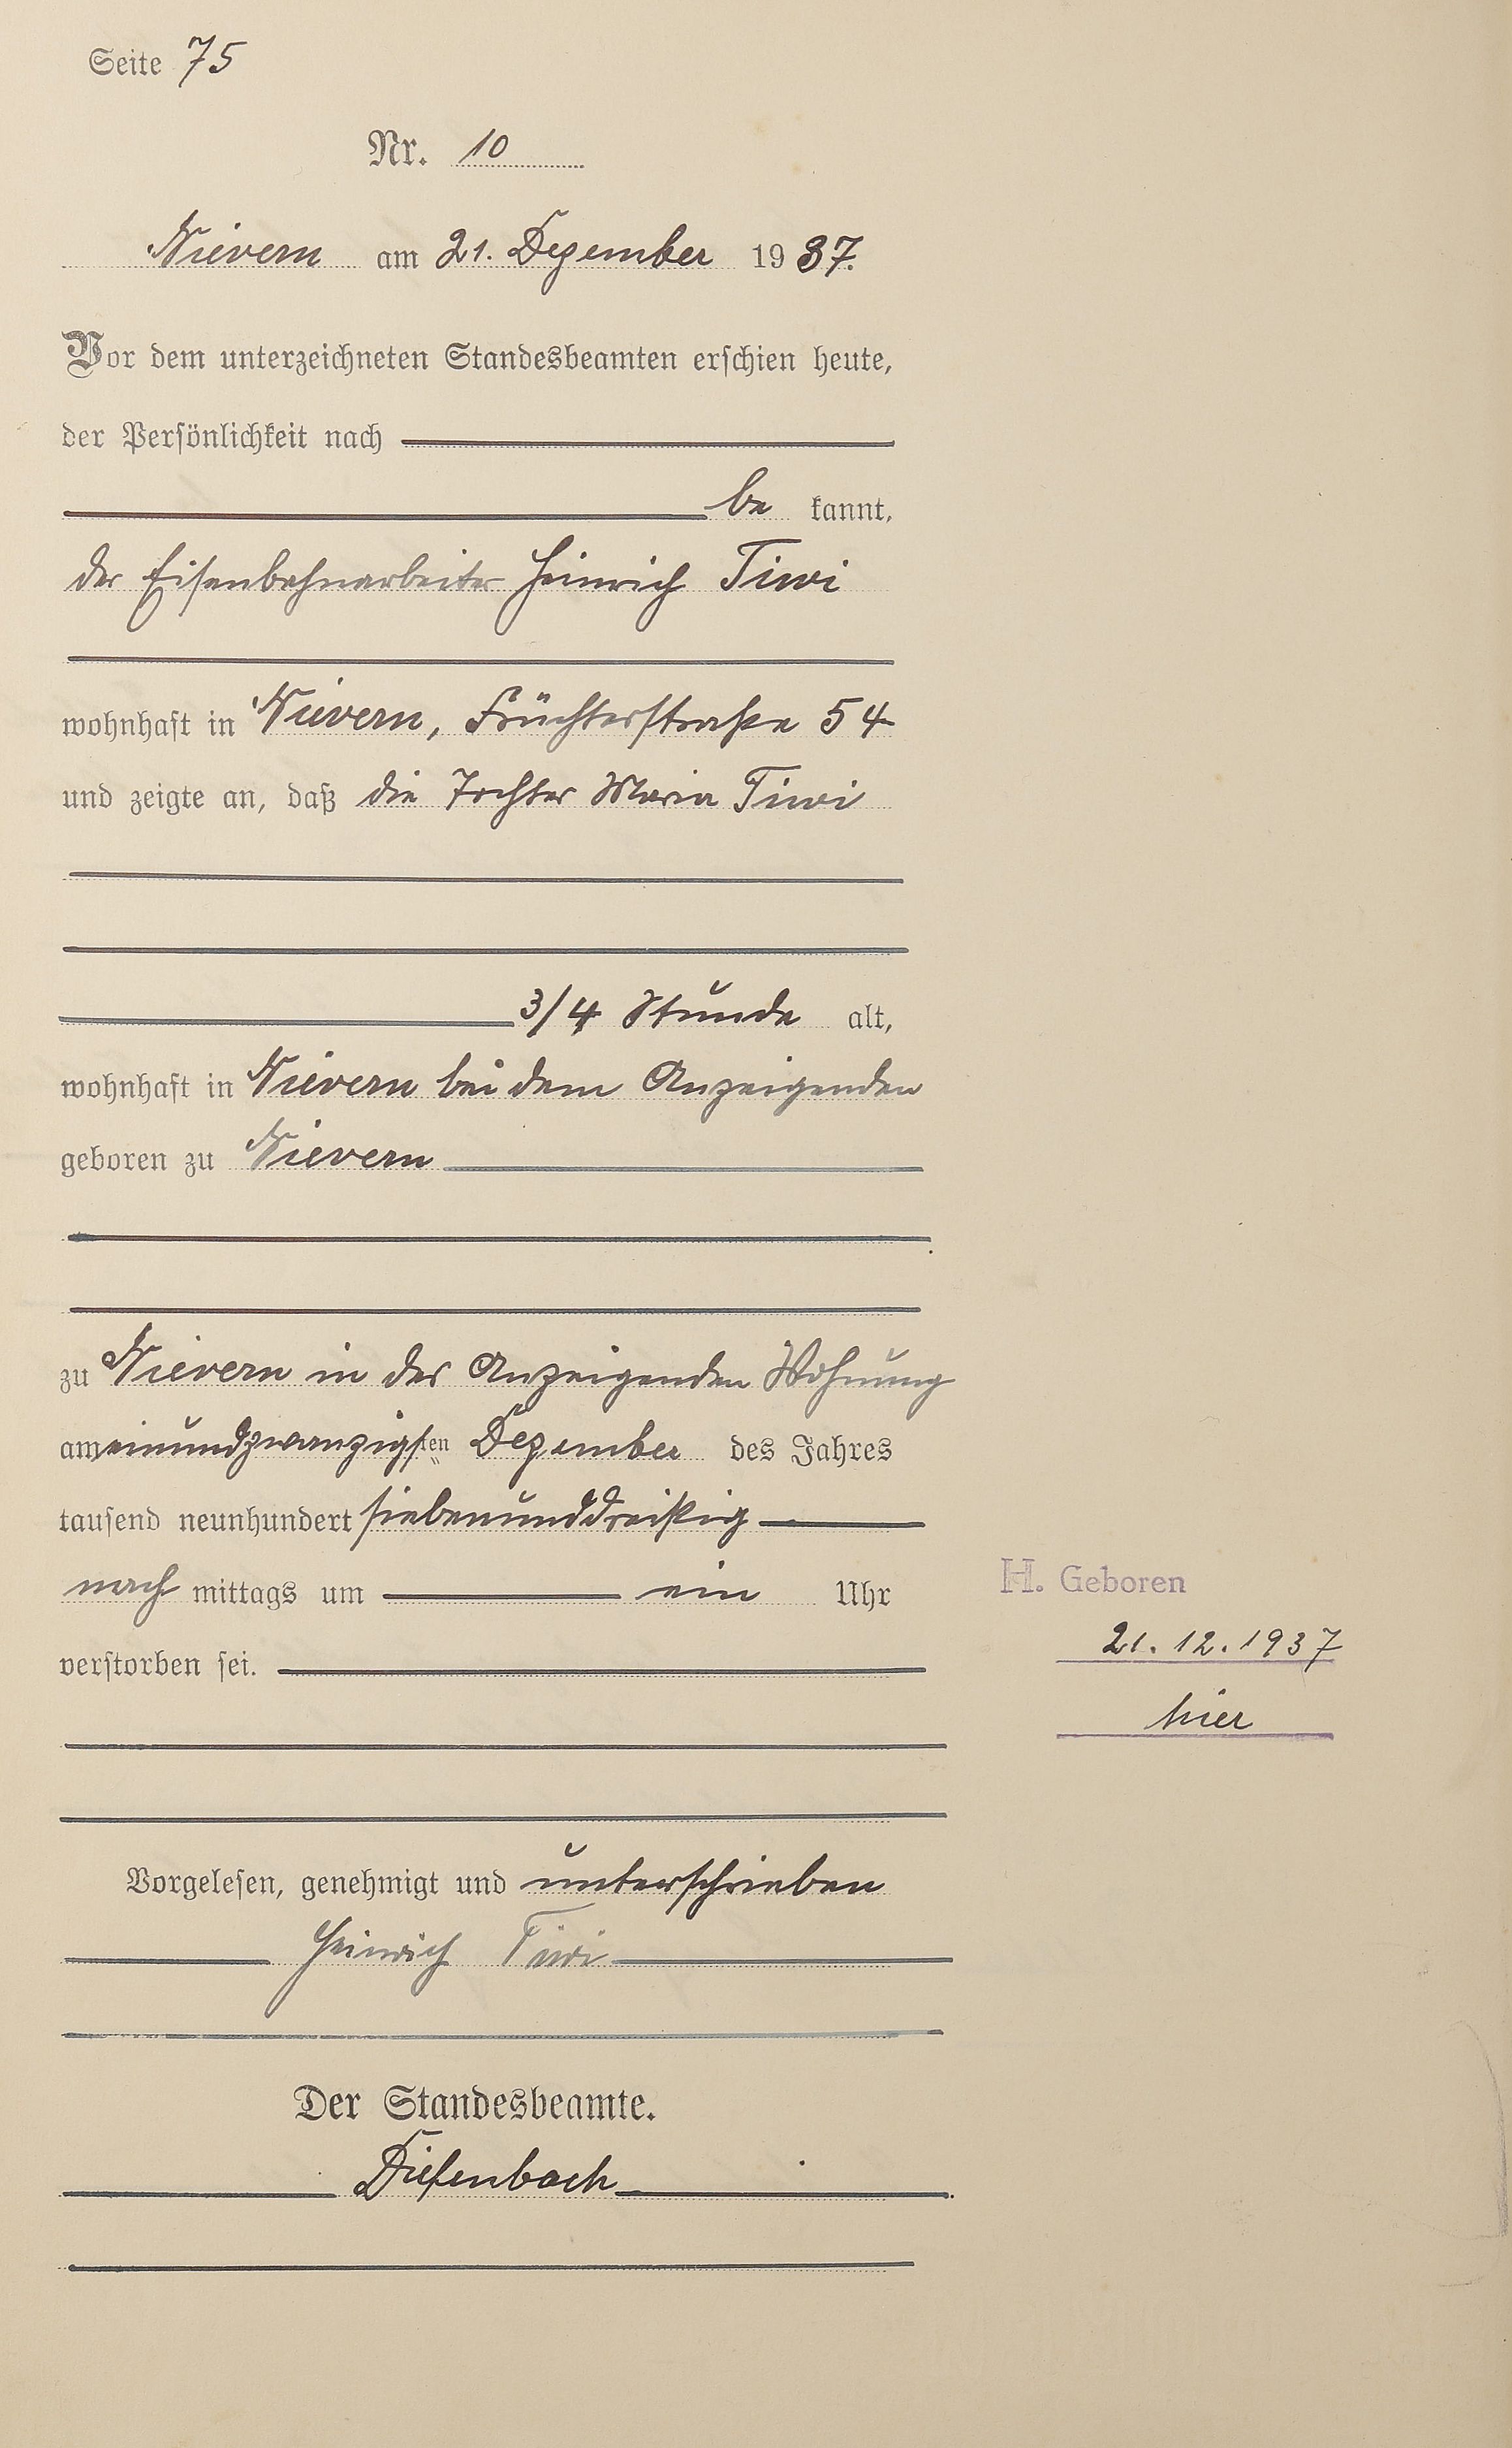 Seite 75
Nr. 10
Nievern am 21. Dezember 1937.
Vor dem unterzeichneten Standesbeamten erschien heute,
der Persönlichkeit nach
be kannt,
der Eisenbahnarbeiter Heinrich Tiwi
wohnhaft in Nievern, Früchterstraße 54
und zeigte an, daß die Tochter Maria Tiwi
3/4 Stunde alt,
wohnhaft in Nievern bei dem Anzeigenden
geboren zu Nievern
zu Nievern in der Anzeigenden Wohnung
am einundzwanzigsten Dezember des Jahres
tausend neunhundert siebenunddreißig
nach mittags um ein Uhr
verstorben sei.
H. Geboren
21.12.1937
hier
Vorgelesen, genehmigt und unterschrieben
Heinrich Tiwi
Der Standesbeamte.
Diefenbach